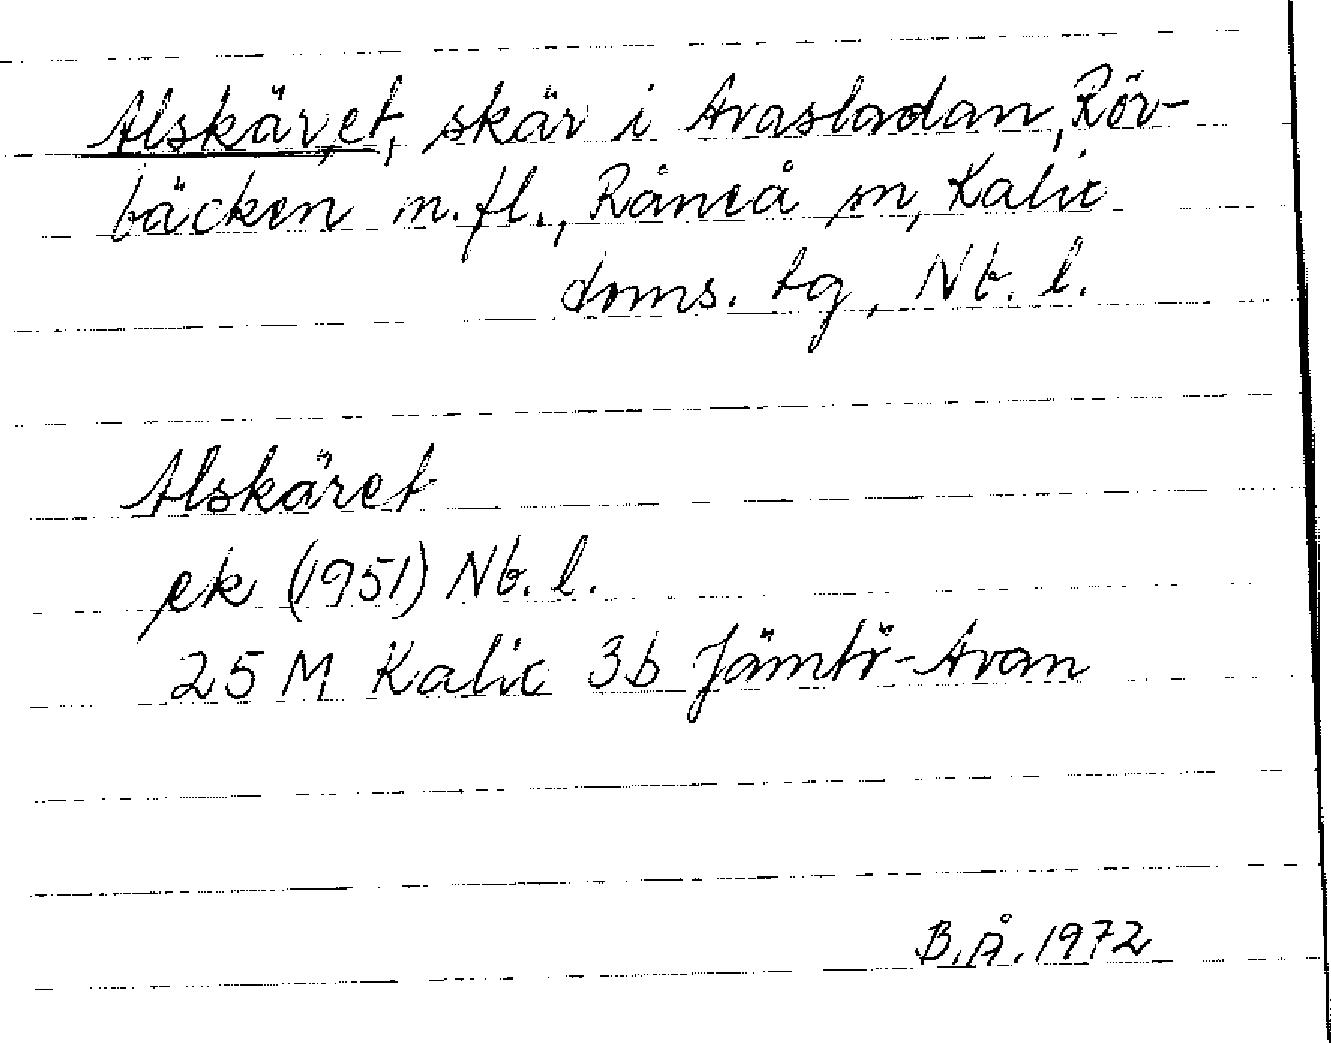 Alskär,et, skär i Avasladan, Rör-
bäcken m.fl., Råneå sn, Kalix
doms. tg, Nb. l.
Alskäret
ek (1951) Nb. l.
25 M Kalix 3b Jämtö-Avan
B.Å. 1972